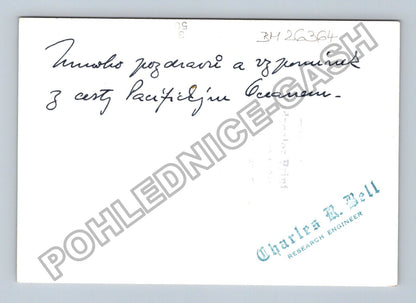 BH 26364
Mnoho pozdravů a vzpomínek
z cesty Pacifickým Oceanem.
POHLEDNICE-GASH
Charles R. Bell
RESEARCH ENGINEER